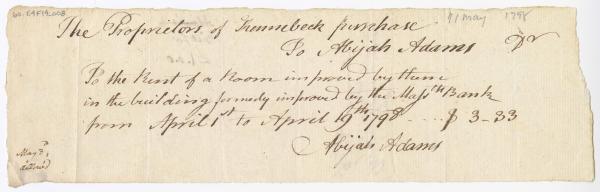 The Proprietors of Kennebeck purchase
11 May 1798
To Abijah Adams Dr
To the Rent of a Room improved by them
in the building formerly improved by the Massts Bank
from April 1st to April 19th 1798 .... $ 3-33
Abijah Adams
May